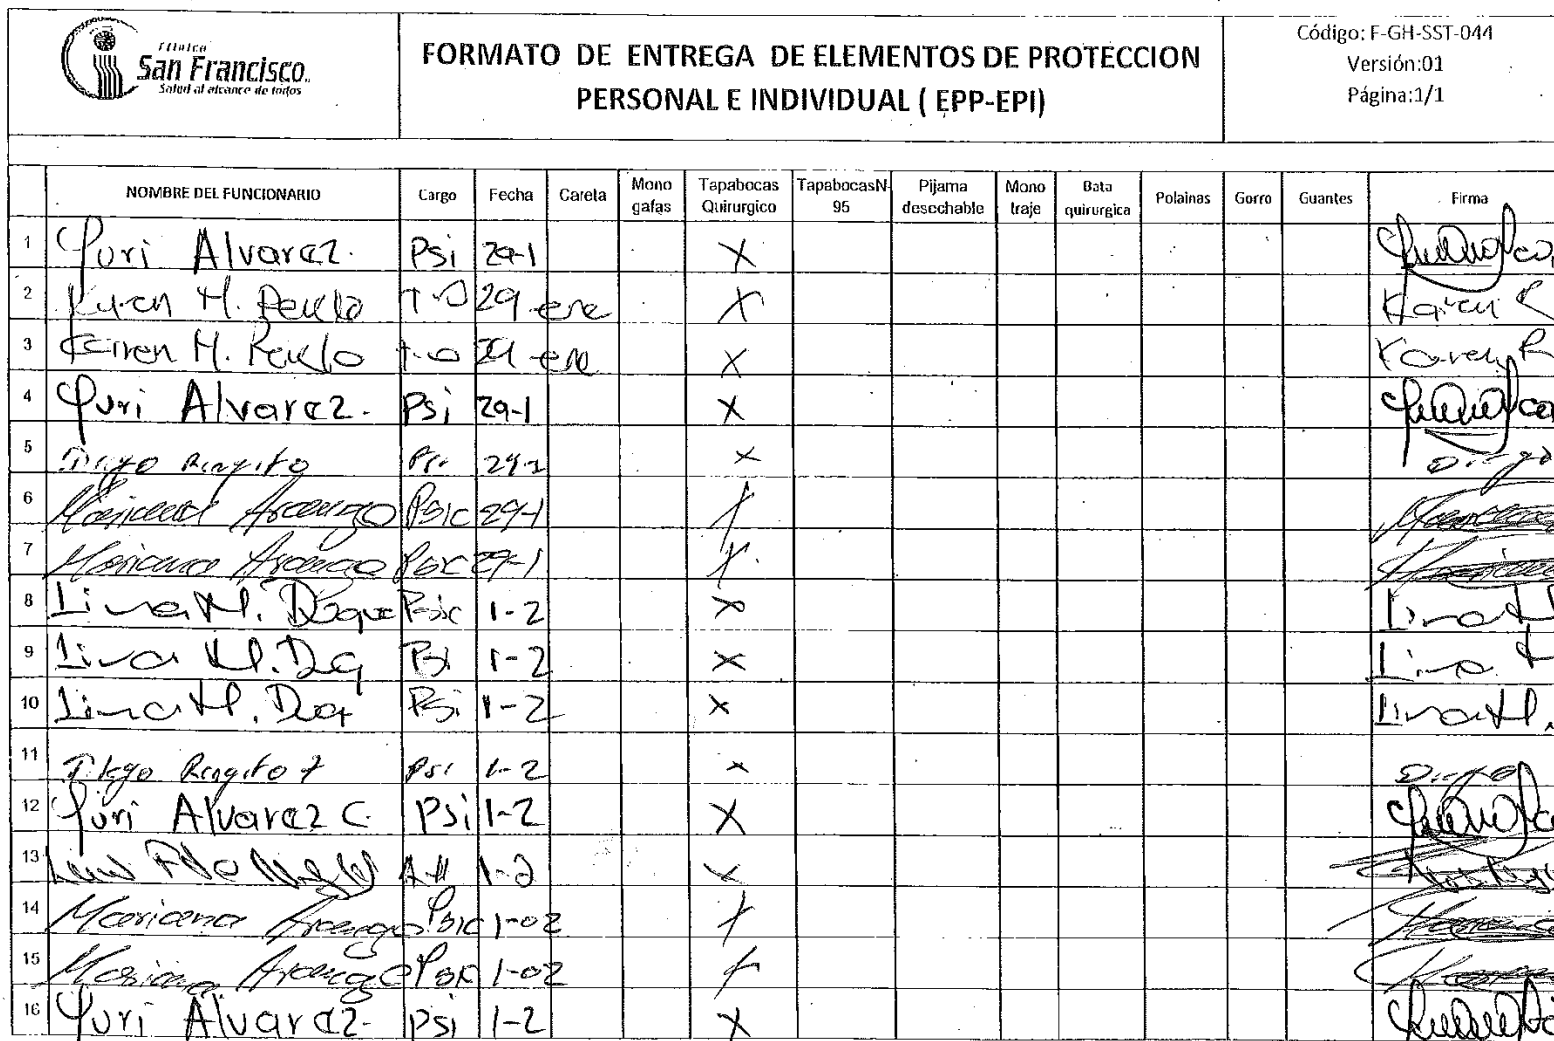 Clínica
San Francisco
Salud al alcance de todos
FORMATO DE ENTREGA DE ELEMENTOS DE PROTECCION
PERSONAL E INDIVIDUAL ( EPP-EPI)
Código: F-GH-SST-044
Versión:01
Página:1/1
NOMBRE DEL FUNCIONARIO Cargo Fecha Careta Mono gafas Tapabocas Quirurgico TapabocasN-95 Pijama desechable Mono traje Bata quirurgica Polainas Gorro Guantes Firma
1 Yuri Alvarez. Psi 29-1 X
2 Karen M. T.O 29 ene X Karen R
3 Karen M. T.O 29 ene X Karen R
4 Yuri Alvarez. Psi 29-1 X
5 Diego Psi 29-1 X Diego
6 Mariana Arango Psic 29-1 X
7 Mariana Arango Psic 29-1 X
8 Lina M. Duque Psic 1-2 X Lina M
9 Lina M. Duq Psi 1-2 X Lina
10 Lina M. Duq Psi 1-2 X Lina M.
11 Diego Psi 1-2 X Diego
12 Yuri Alvarez C. Psi 1-2 X
13 1-2 X
14 Mariana Arango Psic 1-02 X
15 Mariana Arango Psic 1-02 X
16 Yuri Alvarez- Psi 1-2 X